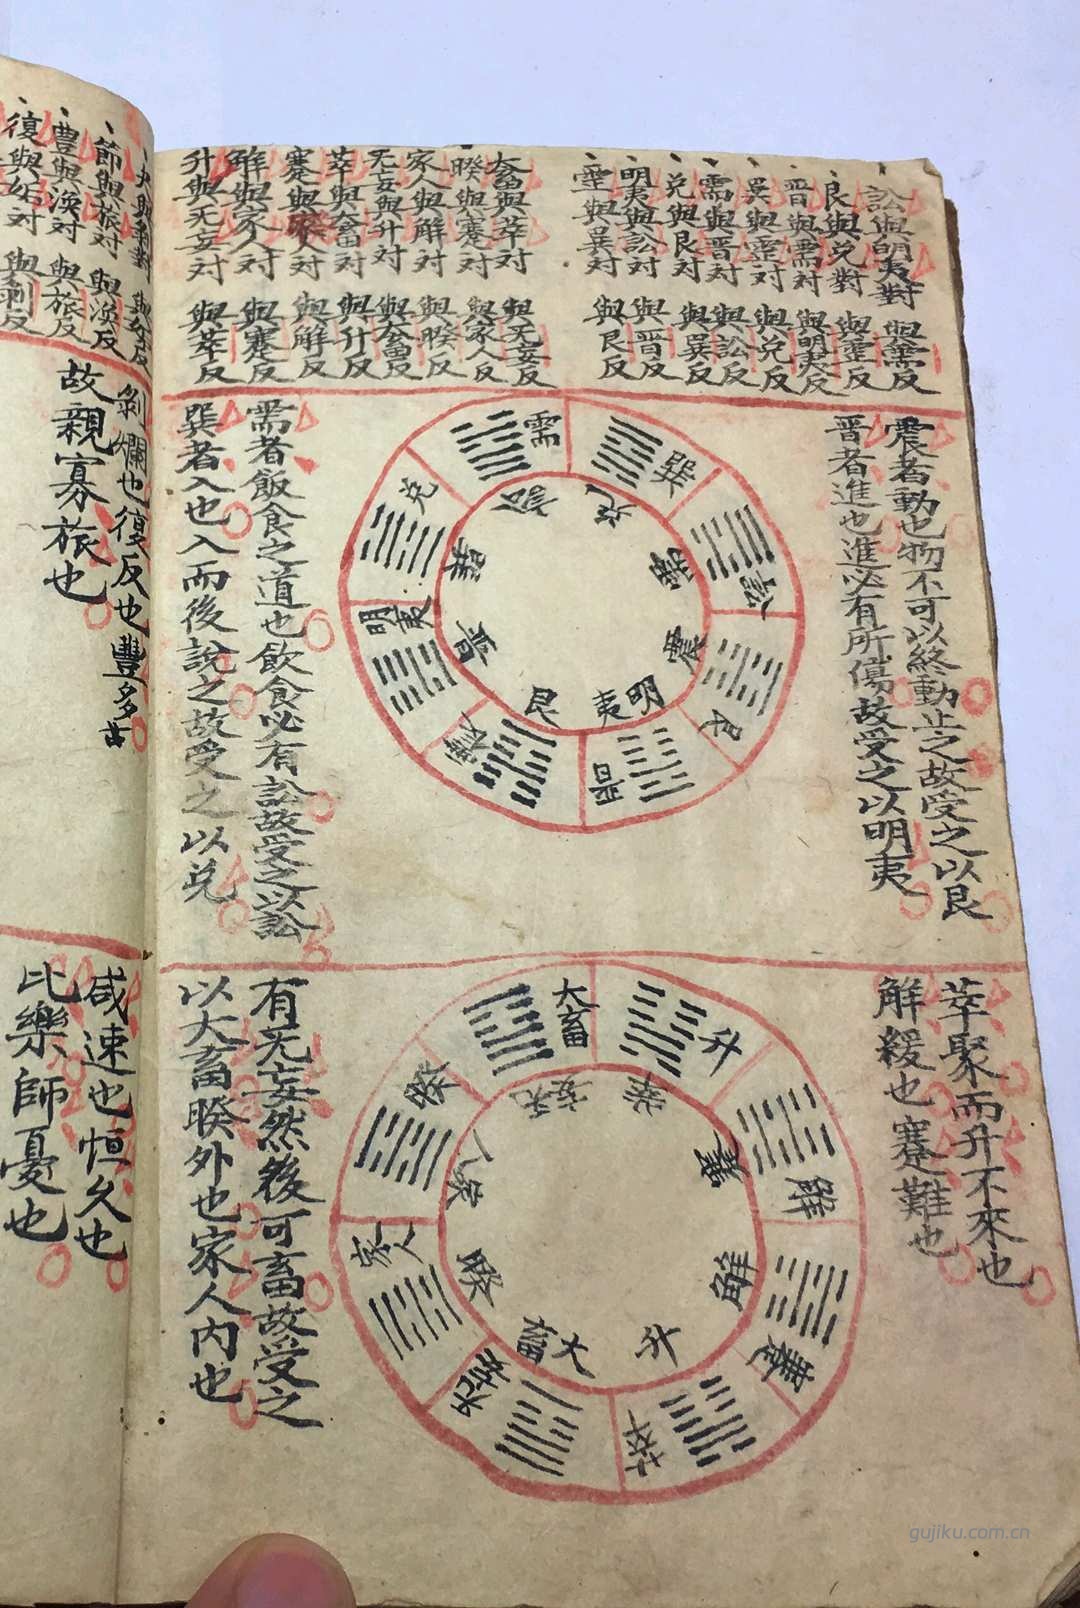 訟與明夷對 與需反
艮與兑對 與震反
晋與需对 與明夷反
巽與震对 與兑反
需與晋对 與訟反
兑與艮对 與巽反
明夷與訟对 與晋反
震與巽对 與艮反
大畜與萃对 與无妄反
睽與蹇对 與家人反
家人與解对 與睽反
无妄與升对 與大畜反
萃與大畜对 與升反
蹇與睽对 與解反
解與家人对 與蹇反
升與无妄对 與萃反
震者動也物不可以終動止之故受之以艮
晋者進也進必有所傷故受之以明夷
需
巽
訟
艮
晋
震
明夷
兑
訟
兑
需
震
明夷
艮
晋
巽
需者飯食之道也飲食必有訟故受之以訟
巽者入也入而後說之故受之以兑
萃聚而升不來也
解緩也蹇難也
大畜
升
解
蹇
萃
无妄
家人
睽
无妄
萃
蹇
解
升
大畜
睽
家人
有无妄然後可畜故受之
以大畜睽外也家人内也
節與旅对 與渙反
豊與渙对 與旅反
復與姤对 與剝反
剝爛也復反也豐多故
故親寡旅也
咸速也恒久也
比樂師憂也
gujiku.com.cn